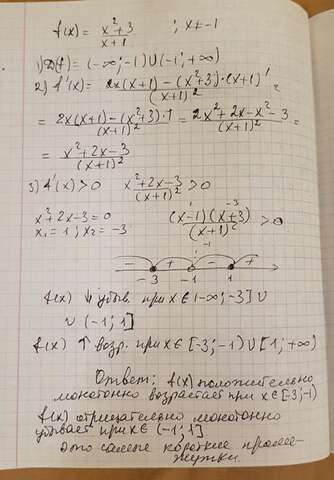 f(x) = x²+3 / x+1 ; x≠-1
1) D(f) = (-∞;-1)∪(-1;+∞)
2) f'(x) = 2x(x+1) - (x²+3)·(x+1)' / (x+1)² =
= 2x(x+1) - (x²+3)·1 / (x+1)² = 2x²+2x-x²-3 / (x+1)² =
= x²+2x-3 / (x+1)²
3) f'(x)>0 x²+2x-3 / (x+1)² >0
x²+2x-3=0 (x-1)(x+3) / (x+1)² >0
x₁=1; x₂=-3 1 -3 -1
- + - +
-3 -1 1
f(x) ↓ убыв. при x∈(-∞;-3]∪
∪(-1;1]
f(x) ↑ возр. при x∈[-3;-1)∪[1;+∞)
Ответ: f(x) положительно
монотонно возрастает при x∈[-3;-1)
f(x) отрицательно монотонно
убывает при x∈(-1;1]
это самые короткие проме-
жутки.